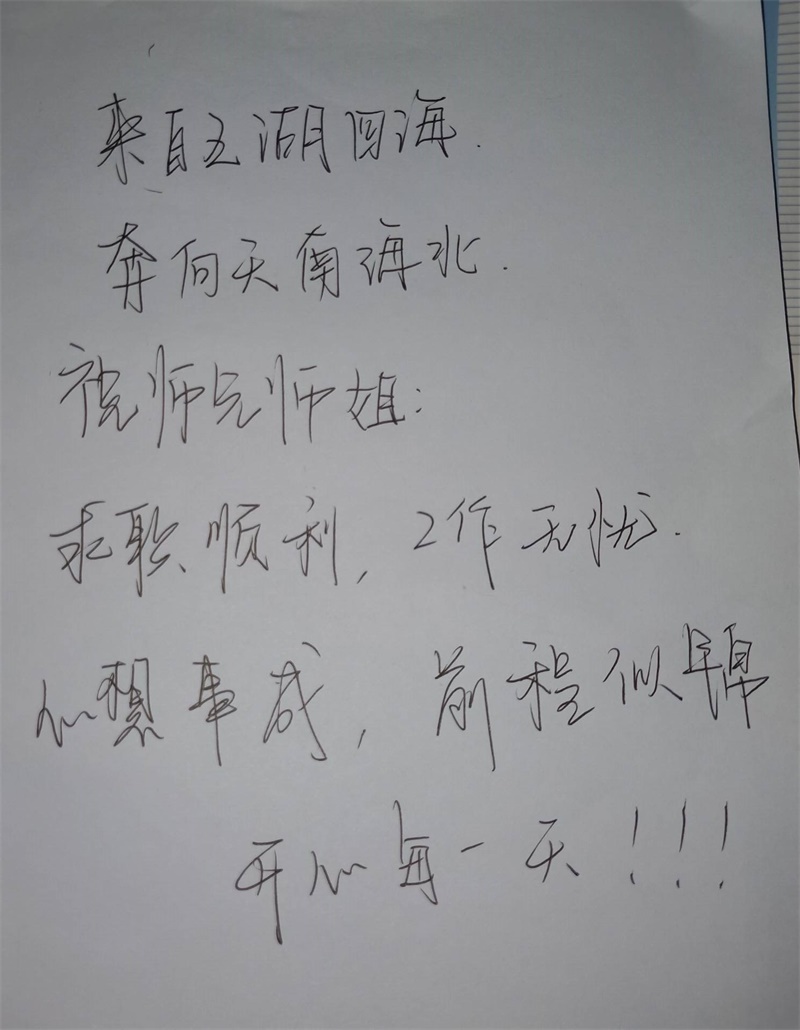 来自五湖四海.
奔向天南海北.
祝师兄师姐:
求职顺利,工作无忧.
心想事成,前程似锦
开心每一天!!!